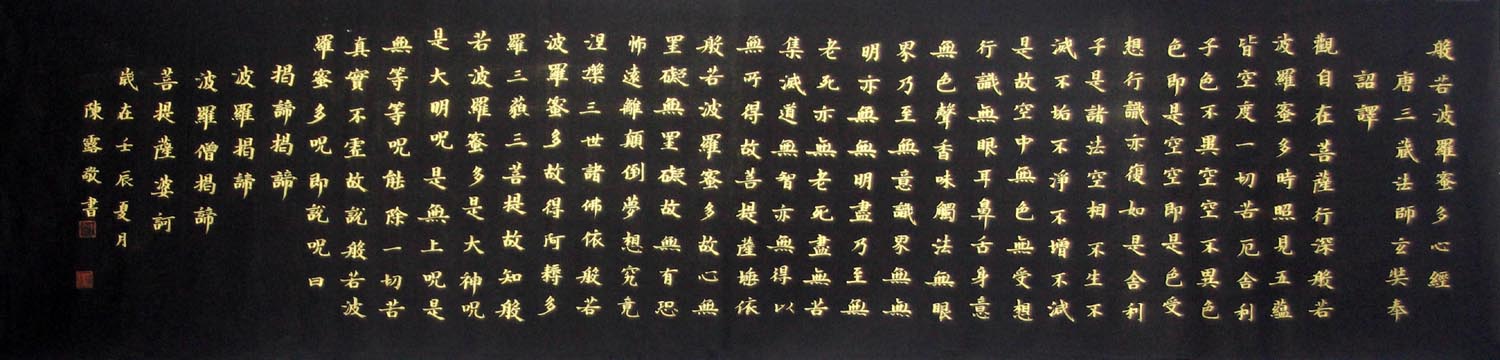 般若波羅蜜多心經
唐三藏法師玄奘奉
詔譯
觀自在菩薩行深般若
波羅蜜多時照見五蘊
皆空度一切苦厄舍利
子色不異空空不異色
色即是空空即是色受
想行識亦復如是舍利
子是諸法空相不生不
滅不垢不淨不增不減
是故空中無色無受想
行識無眼耳鼻舌身意
無色聲香味觸法無眼
界乃至無意識界無無
明亦無無明盡乃至無
老死亦無老死盡無苦
集滅道無智亦無得以
無所得故菩提薩埵依
般若波羅蜜多故心無
罣礙無罣礙故無有恐
怖遠離顛倒夢想究竟
涅槃三世諸佛依般若
波羅蜜多故得阿耨多
羅三藐三菩提故知般
若波羅蜜多是大神呪
是大明呪是無上呪是
無等等呪能除一切苦
真實不虛故說般若波
羅蜜多呪即說呪曰
揭諦揭諦
波羅揭諦
波羅僧揭諦
菩提薩婆訶
歲在壬辰夏月
陳露敬書